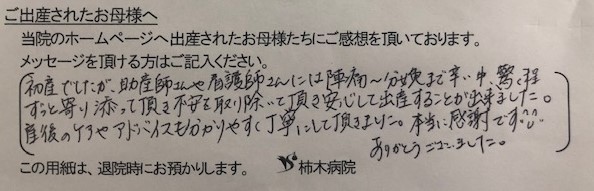 ご出産されたお母様へ
当院のホームページへ出産されたお母様たちにご感想を頂いております。
メッセージを頂ける方はご記入ください。
初産でしたが、助産師さんや看護師さんには陣痛〜分娩まで辛い中、驚く程
ずっと寄り添って頂き不安を取り除いて頂き安心して出産することが出来ました。
産後のケアやアドバイスも分かりやすく丁寧にして頂きました。本当に感謝です!!
ありがとうございました。
この用紙は、退院時にお預かりします。 柿木病院